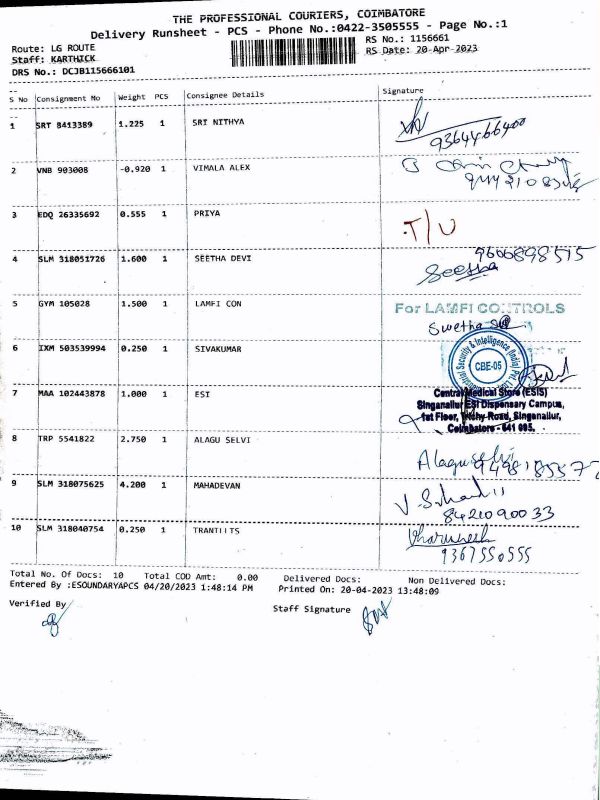 THE PROFESSIONAL COURIERS, COIMBATORE
Delivery Runsheet - PCS - Phone No.:0422-3505555 - Page No.:1
Route: LG ROUTE
RS No.: 1156661
Staff: KARTHICK
RS Date: 20-Apr-2023
DRS No.: DCJB115666101
S No Consignment No Weight PCS Consignee Details Signature
1 SRT 8413389 1.225 1 SRI NITHYA
9364466400
2 VNB 903008 -0.920 1 VIMALA ALEX
3 EDQ 26335692 0.555 1 PRIYA
T/U
4 SLM 318051726 1.600 1 SEETHA DEVI
9600898515
Seetha
5 GYM 105028 1.500 1 LAMFI CON
For LAMFI CONTROLS
Swetha
6 IXM 503539994 0.250 1 SIVAKUMAR
Security & Intelligence (India) Pvt. Ltd.
CBE-05
7 MAA 102443878 1.000 1 ESI
Central Medical Store (ESIS)
Singanallur ESI Dispensary Campus,
1st Floor, Trichy Road, Singanallur,
Coimbatore - 641 005.
8 TRP 5541822 2.750 1 ALAGU SELVI
Alaguselvi
9 SLM 318075625 4.200 1 MAHADEVAN
8421090033
10 SLM 318040754 0.250 1 TRANTIITS
9367550555
Total No. Of Docs: 10 Total COD Amt: 0.00 Delivered Docs: Non Delivered Docs:
Entered By :ESOUNDARYAPCS 04/20/2023 1:48:14 PM Printed On: 20-04-2023 13:48:09
Verified By
Staff Signature